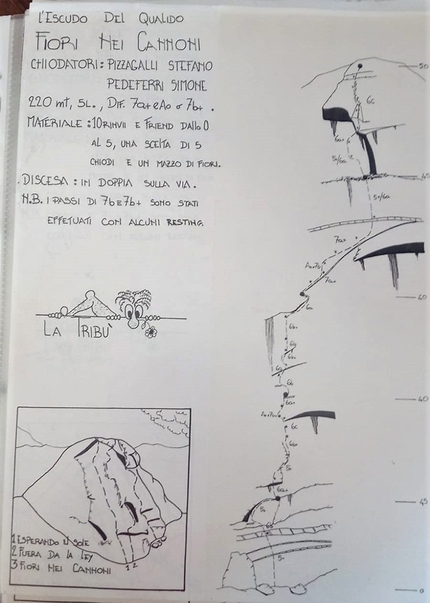 L'ESCUDO DEL QUALIDO
FIORI NEI CANNONI
CHIODATORI: PIZZAGALLI STEFANO
PEDEFERRI SIMONE
220 MT, 5L., DIF. 7a+ e A0 o 7b+.
MATERIALE: 10 RINVII E FRIEND DALLO 0
AL 5, UNA SCELTA DI 5
CHIODI E UN MAZZO DI FIORI.
DISCESA: IN DOPPIA SULLA VIA.
N.B. I PASSI DI 7b e 7b+ SONO STATI
EFFETUATI CON ALCUNI RESTING.
LA TRIBU'
1 ESPERANDO EL SOLE
2 FUERA DA LA LEY
3 FIORI NEI CANNONI
1 2
50
6c
5c/6a
45
5c/6a
7a+
A0 o 7b
7a+
40
6c
6c
40
6c
5c
45
5c
5+
0